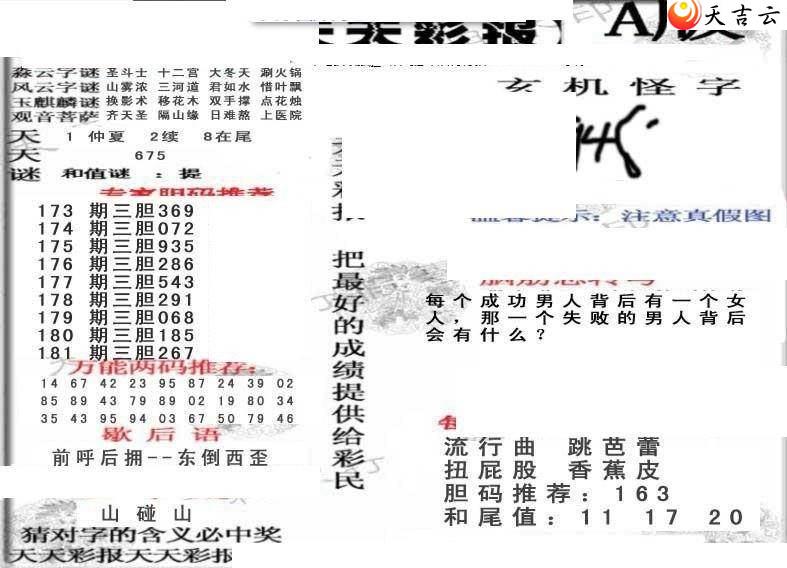 天吉云
天天彩报
森云字谜 圣斗士 十二宫 大冬天 涮火锅
风云字谜 山雾浓 三河道 君如水 惜叶飘
玉麒麟谜 换影术 移花木 双手撑 点花烛
观音菩萨 齐天圣 隔山缘 日难熬 上医院
天 1 仲夏 2续 8在尾
天 675
谜 和值谜 : 提
玄机怪字
专家胆码推荐
173 期三胆369
174 期三胆072
175 期三胆935
176 期三胆286
177 期三胆543
178 期三胆291
179 期三胆068
180 期三胆185
181 期三胆267
万能两码推荐:
14 67 42 23 95 87 24 39 02
85 89 43 79 89 02 19 80 34
35 43 95 94 03 67 50 79 46
歇后语
前呼后拥--东倒西歪
山碰山
猜对字的含义必中奖
天天彩报天天彩报
把最好的成绩提供给彩民
温馨提示: 注意真假图
脑筋急转弯
每个成功男人背后有一个女
人，那一个失败的男人背后
会有什么？
流行曲 跳芭蕾
扭屁股 香蕉皮
胆码推荐: 163
和尾值: 11 17 20